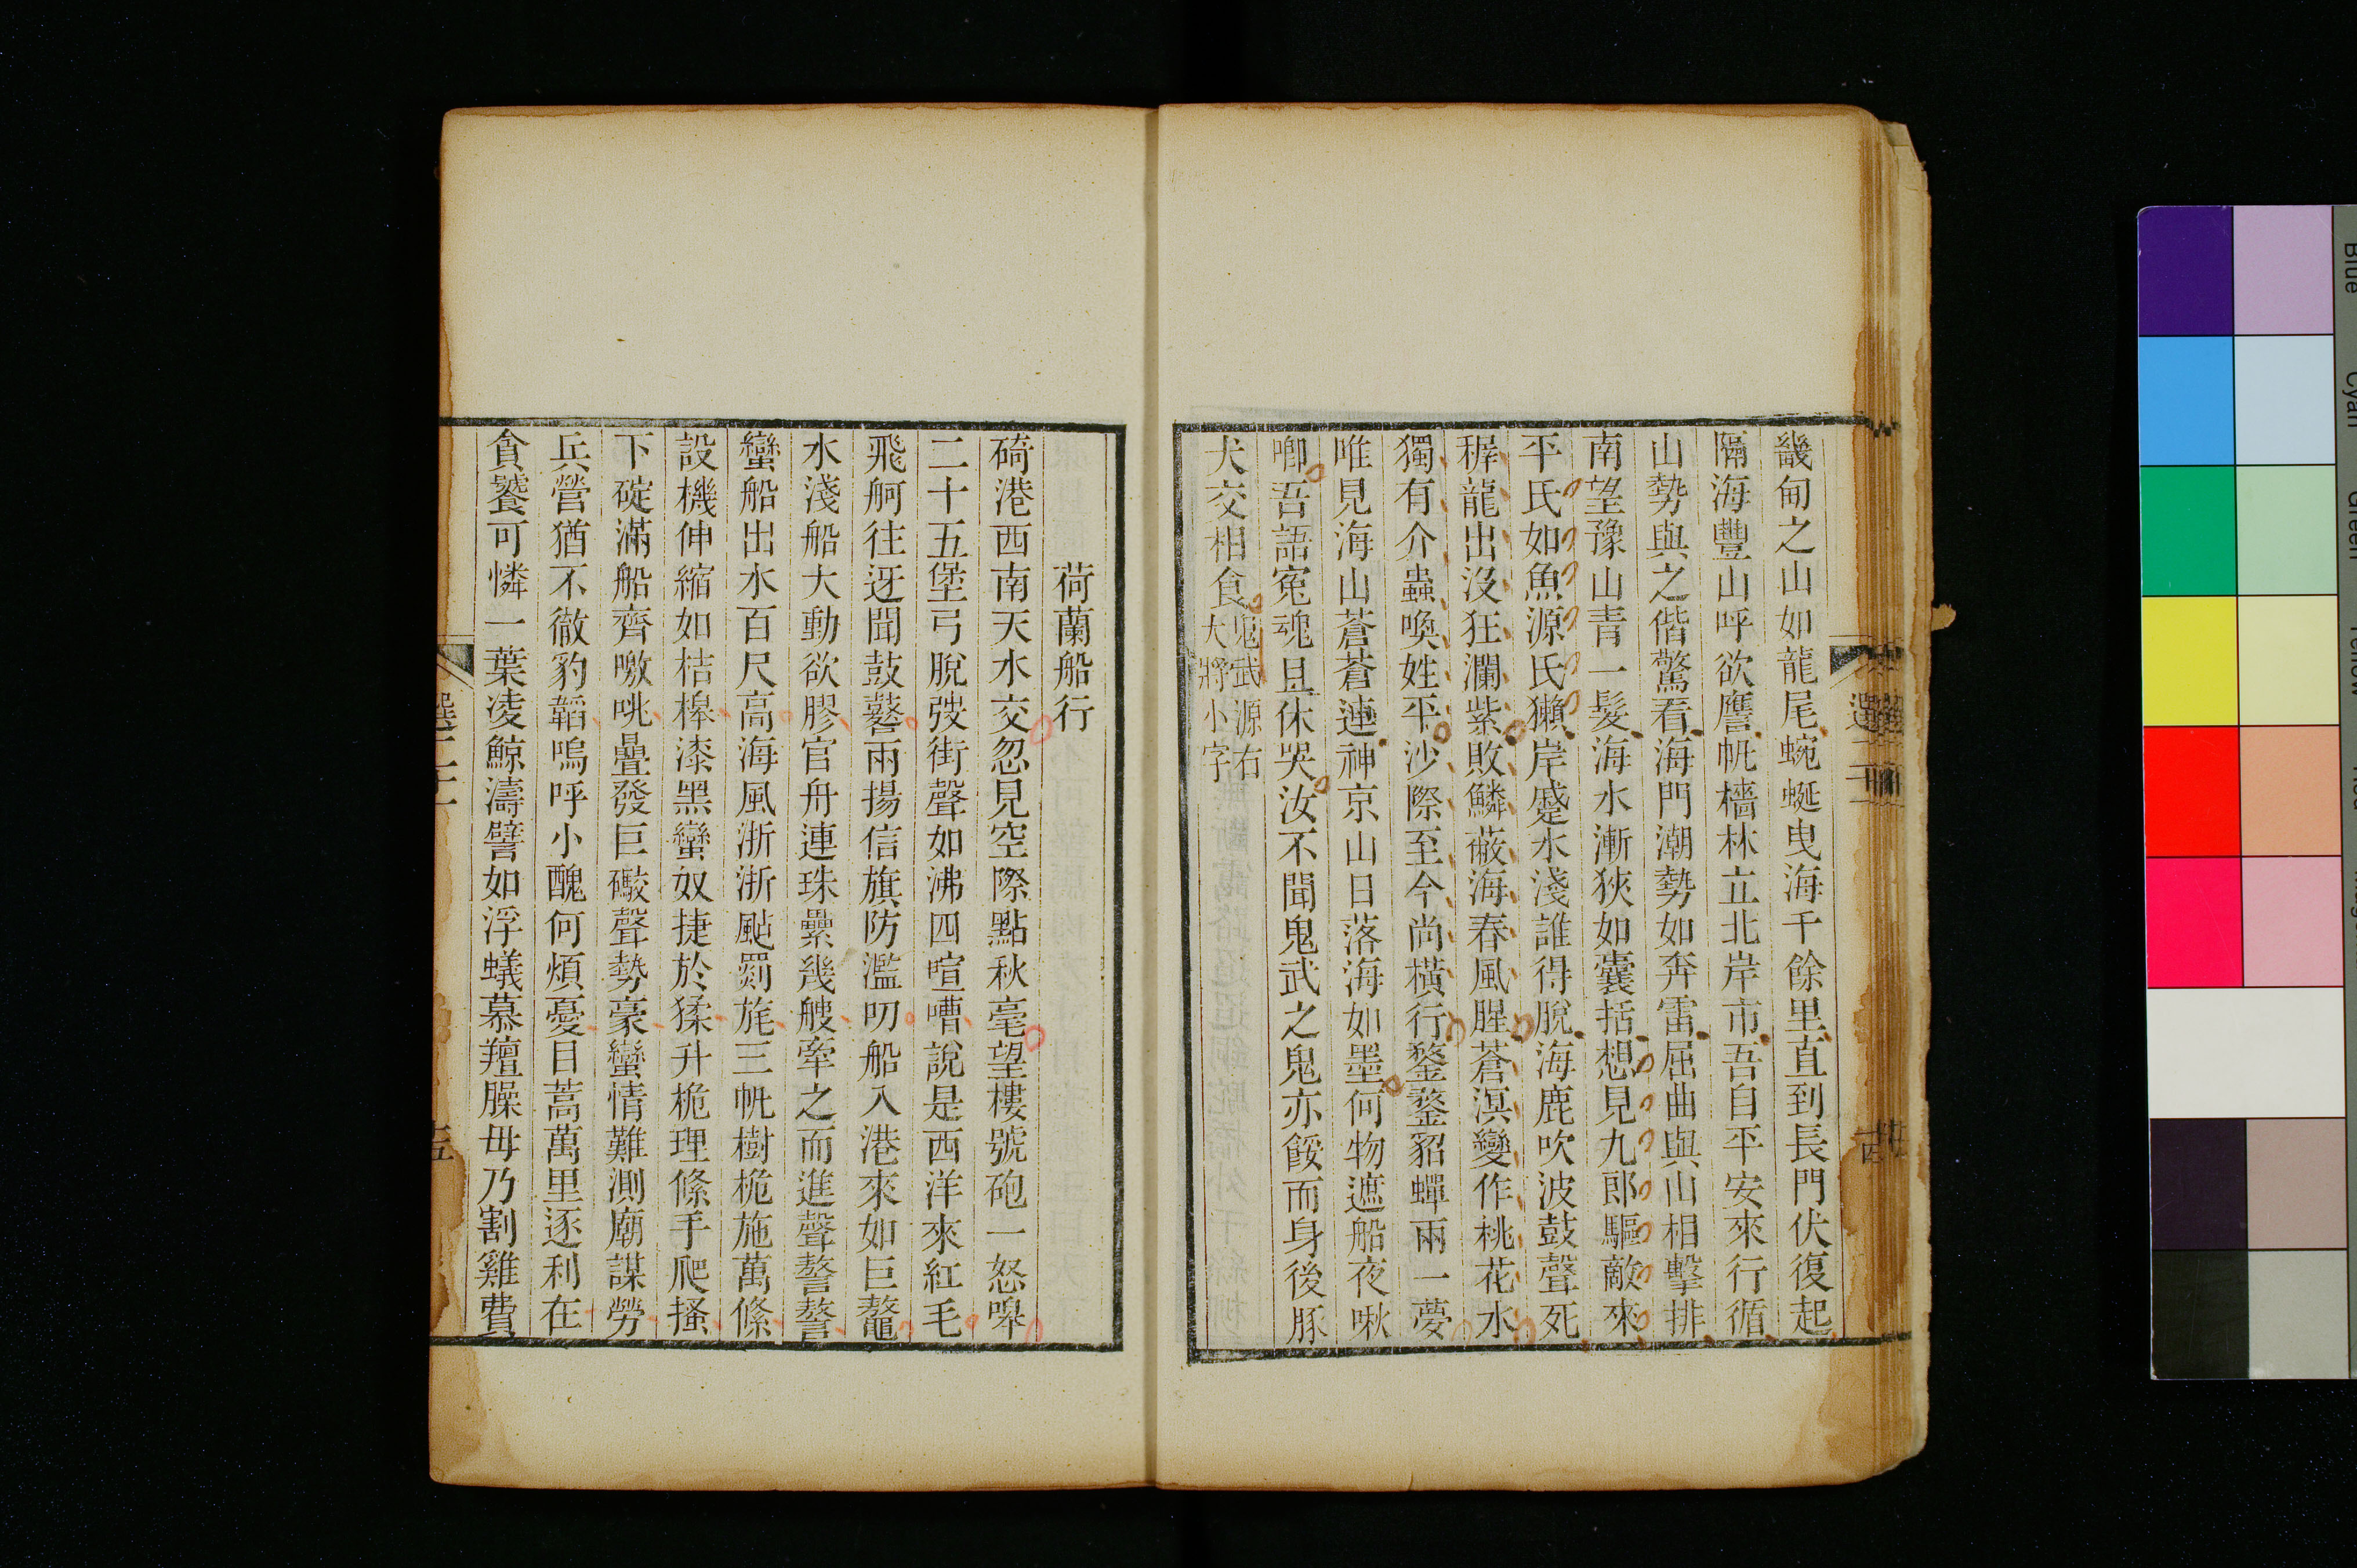 畿甸之山如龍尾蜿蜒曳海千餘里直到長門伏復起
隔海豐山呼欲譍帆檣林立北岸市吾自平安來行循
山勢與之偕驚看海門潮勢如奔雷屈曲與山相擊排
南望豫山青一髮海水漸狹如囊括想見九郎驅敵來
平氏如魚源氏獺岸蹙水淺誰得脫海鹿吹波鼓聲死
穉龍出沒狂瀾紫敗鱗蔽海春風腥蒼溟變作桃花水
獨有介蟲喚姓平沙際至今尚橫行鍪鍪貂蟬兩一夢
唯見海山蒼蒼連神京山日落海如墨何物遮船夜啾
喞吾語寃魂且休哭汝不聞鬼武之鬼亦餒而身後豚
犬交相食
鬼武源右
大將小字
荷蘭船行
碕港西南天水交忽見空際點秋毫望樓號砲一怒嘷
二十五堡弓脫弢街聲如沸四喧嘈說是西洋來紅毛
飛舸往迓聞鼓鼛兩揚信旗防濫叨船入港來如巨鼇
水淺船大動欲膠官舟連珠纍幾艘牽之而進聲警警
蠻船出水百尺高海風浙浙颭罽旄三帆樹桅施萬絛
設機伸縮如桔槹漆黑蠻奴捷於猱升桅理絛手爬搔
下碇滿船齊噭咷疊發巨礮聲勢豪蠻情難測廟謀勞
兵營猶不徹豹韜嗚呼小醜何煩憂目蒿萬里逐利在
貪饕可憐一葉凌鯨濤譬如浮蟻慕羶臊毋乃割雞費